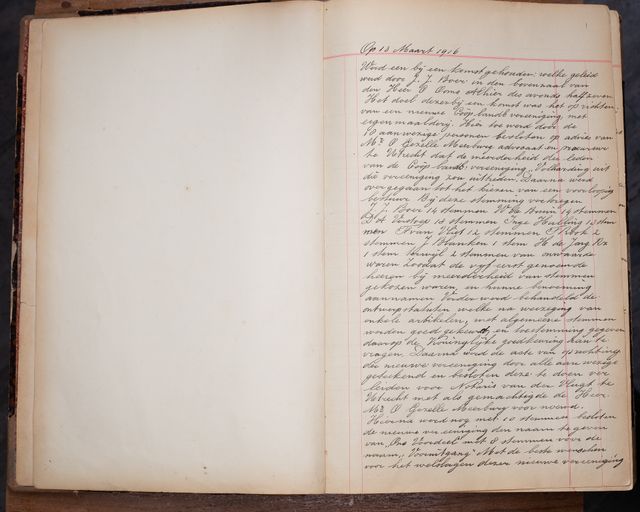 Op 13 Maart 1916
Werd een bij een komst gehouden; welke geleid
werd door J. J. Boer in den bovenzaal van
den Heer O Ooms Alhier des avonds half zeven
Het doel dezer bij een komst was het oprichten
van een nieuwe Coöp landb vereeniging met
eigen maalderij. Hier toe werd door de
aanwezige personen besloten op advies van
Mr O Gezelle Meerburg advocaat en procureur
te Utrecht dat de meerderheid der leden
van de Coöp landb vereeniging "Volharding" uit
die vereeniging zou uittreden. Daarna werd
overgegaan tot het kiezen van een voorloopig
bestuur. Bij deze stemming verkregen
J. J. Boer 14 stemmen W de Bruin 14 stemmen
D v Verstoep 13 stemmen Inge 13 stem
men F van Vliet 12 stemmen P Kok 2
stemmen J Blanken 1 stem H de Jong
1 stem terwijl 2 stemmen van onwaarde
waren zoodat de vijf eerst genoemde
heeren bij meerderheid van stemmen
gekozen waren, en hunne benoeming
aannamen Verder werd behandeld de
ontwerpstatuten welke na wijziging van
enkele artikelen, met algemeene stemmen
werden goed gekeurd, en toestemming gegeven
daarop de Koninglijke goedkeuring aan te
vragen. Daarna werd de acte van oprichting
der nieuwe vereeniging door alle aanwezige
geteekend en besloten deze te doen ver
leiden voor Notaris van der Vlugt te
Utrecht met als gemachtigde de Heer
Mr O Gezelle Meerburg voornoemd.
Hierna werd nog met 10 stemmen besloten
de nieuwe vereeniging den naam te geven
van "Ons Voordeel" met 8 stemmen voor de
naam "Vooruitgang" Met de beste wenschen
voor het welslagen dezer nieuwe vereeniging